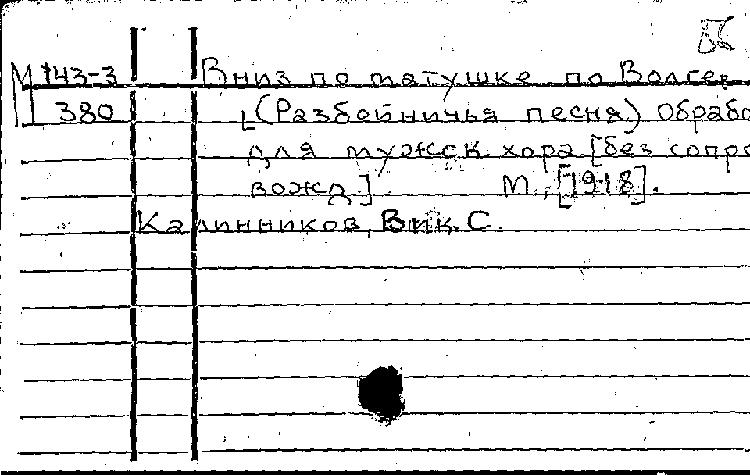 М 143-3 Вниз по матушке по Волге
380 [(Разбойничья песня) Обрабо
для мужск. хора [без сопро
вожд]. М., [1918].
Калинников, Вик. С.